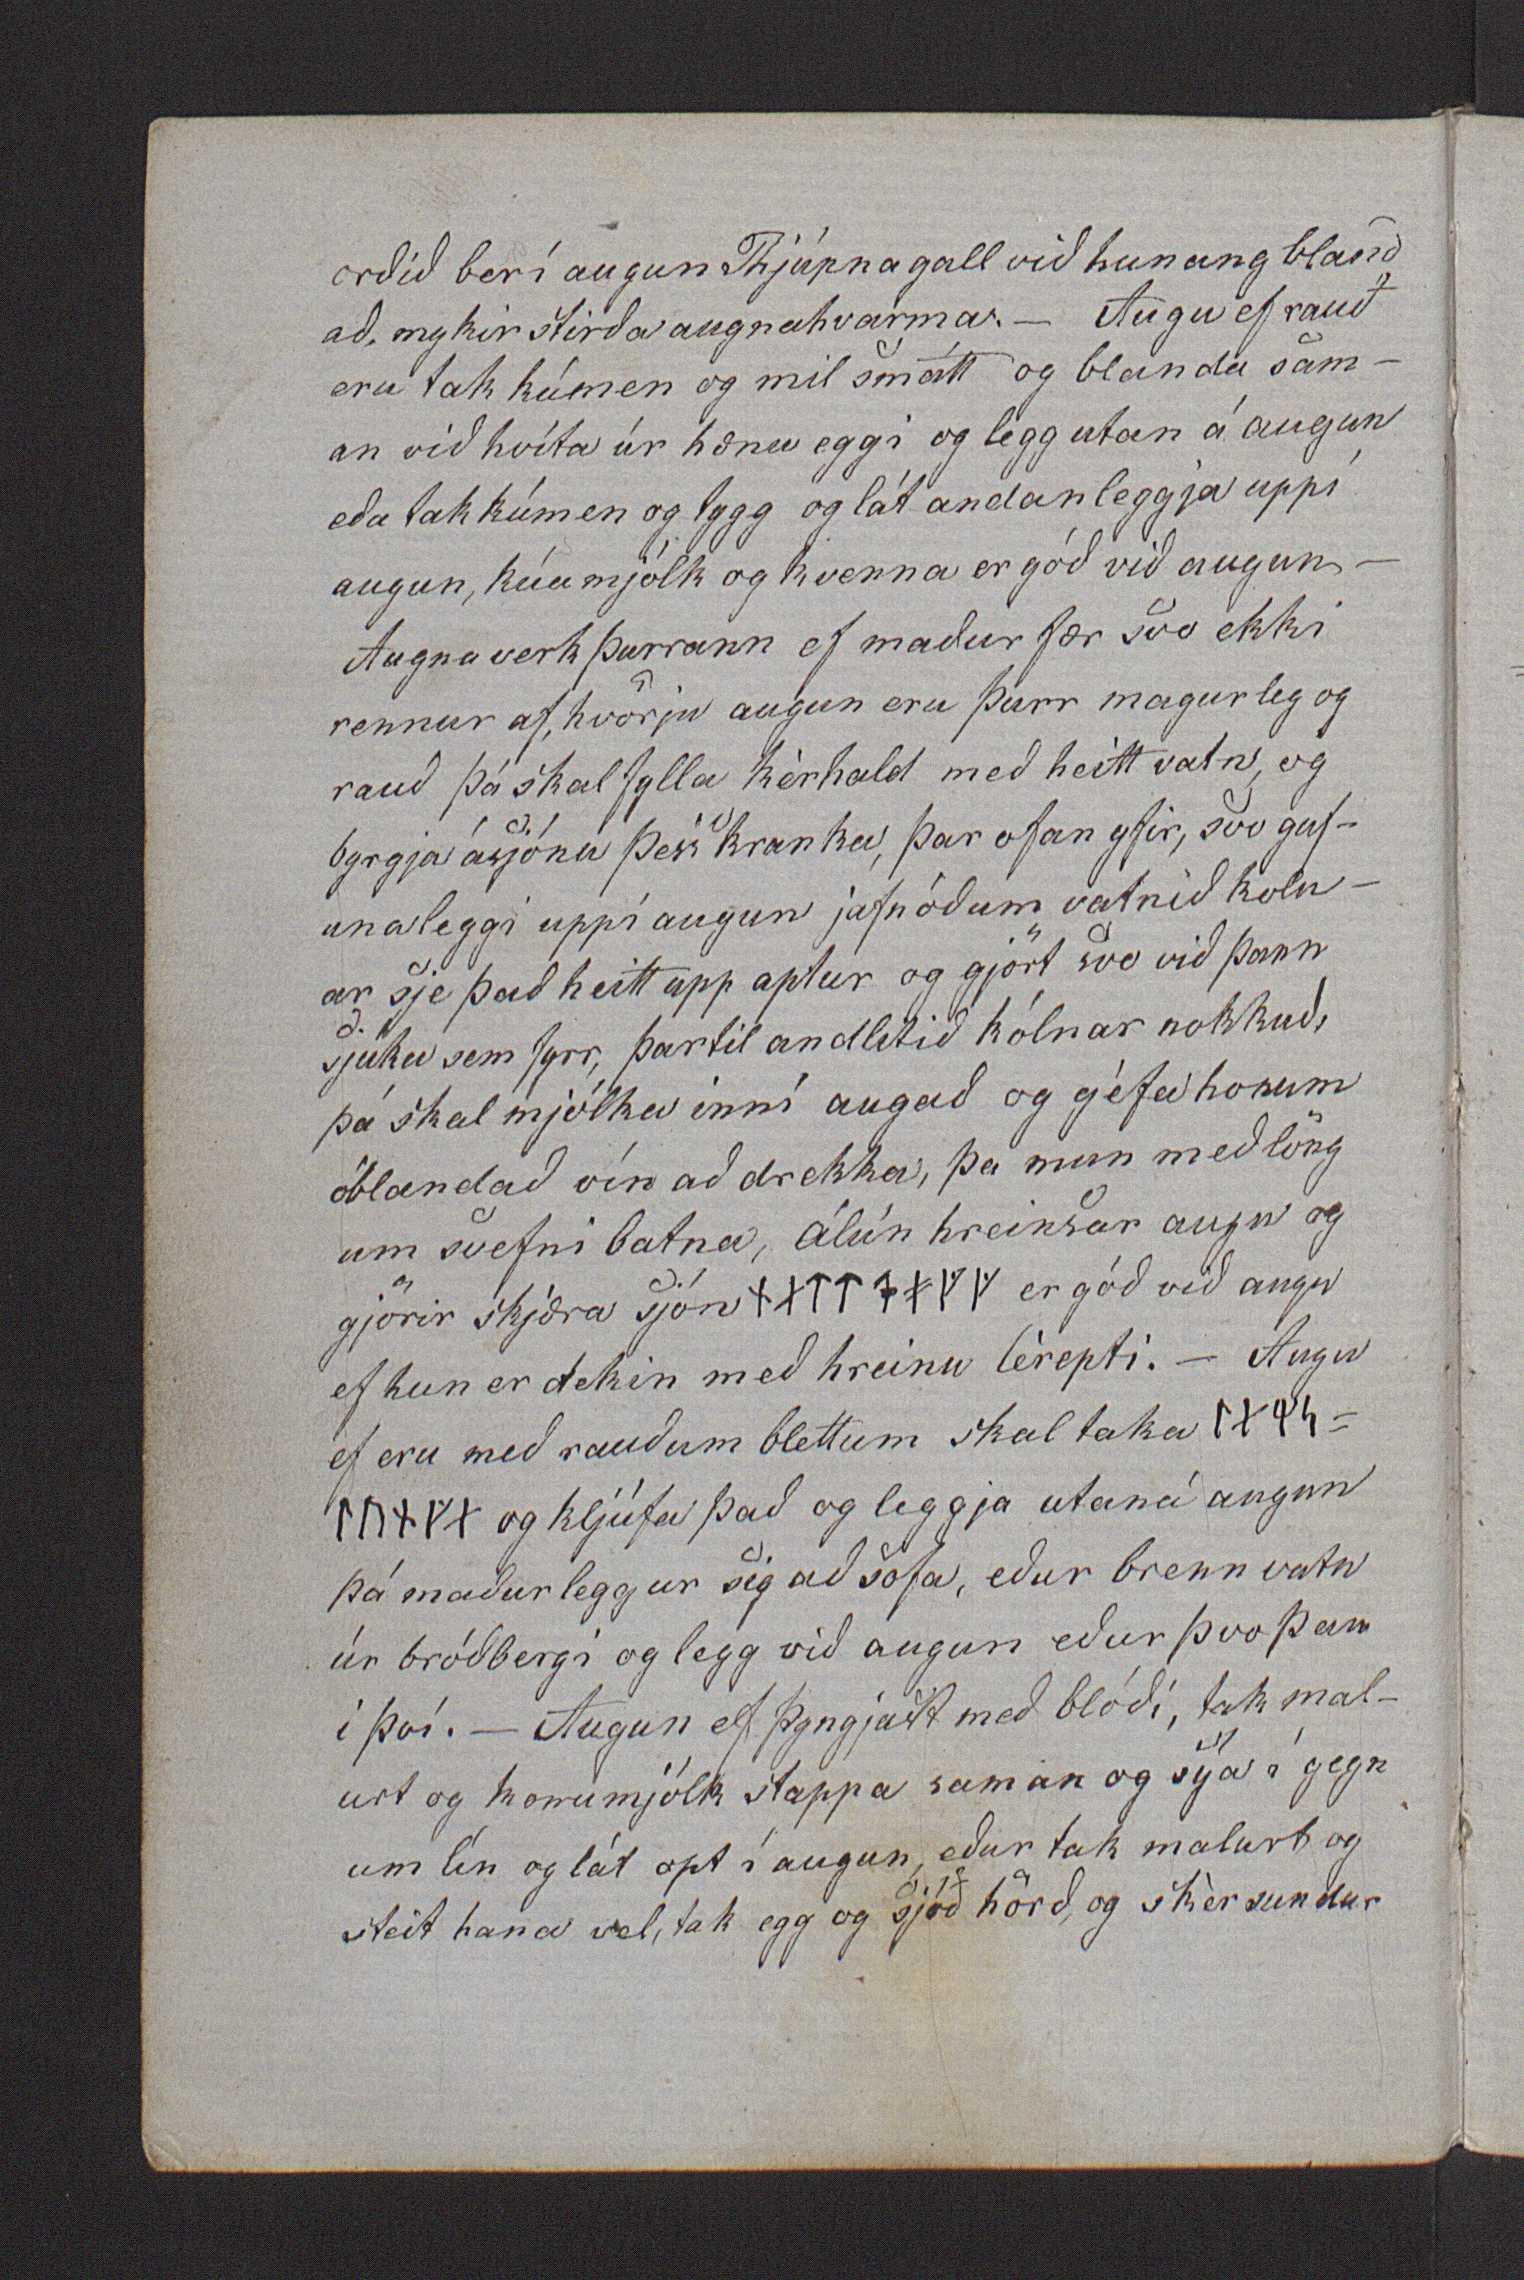 orðið ber í augun Rjúpna gall við hunang bland
að, mykir stirða augnahvarma. — Augu ef rauð
eru tak kúmen og mil smátt og blanda sam-
an við hvíta úr hænu eggi og legg utan á augun
eða tak kúmen og tygg og lát andan leggja uppí
augun, kúamjólk og kvenna er góð við augun, —
Augnaverk þurrann ef maður fær svo ekki
rennur af, hvörju augun eru þurr magurleg og
rauð þá skal fylla kèrhald með heitt vatn, og
byrgja ásjónu þess kranka, þar ofan yfir, svo guf-
una leggi uppí augun jafnóðum vatnið koln-
ar sje það heitt upp aptur og gjört svo við þann
sjúka sem fyrr, þartil andlitið kólnar nokkuð,
þá skal mjólka inní augað og géfa honum
óblandað vín að drekka, þa mun með löng
um svefni batna, álún hreinsar augu og
gjörir skjæra sjón ᚾᛅᛏᛏ ᛅᚠᚠ er góð við augu
ef hun er tekin með hreinu lérepti. — Augu
ef eru með rauðum blettum skal taka ᛚᛅᚢᚴ =
ᛚᚢᚾᚠᛅ og kljúfa það og leggja utaná augun
þá maður leggur sig að sofa, eður brenn vatn
úr bróðbergi og legg við augun eður þvo þau
í því. — Augun ef þyngjast með blóði, tak mal-
urt og konumjólk stappa saman og sýa í gegn
um lín og lát opt í augun, eður tak malurt og
steit hana vel, tak egg og sjóð hörð, og skèr sundur